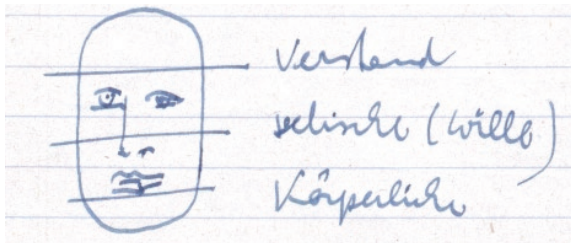 Verstand
selische (Wille)
Körperliche